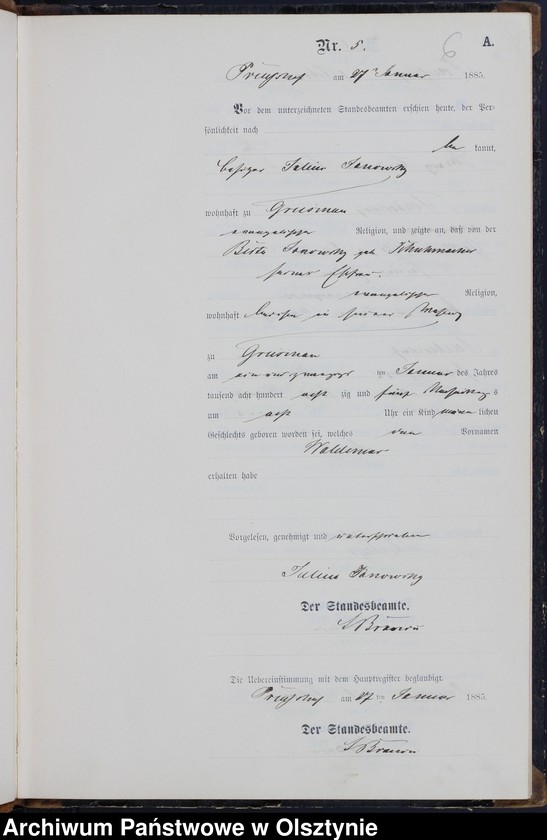 Nr. 5. 6 A.
am 27 ten Januar 1885.
Vor dem unterzeichneten Standesbeamten erschien heute, der Per-
sönlichkeit nach
be kannt,
Besitzer Julius Janowsky
wohnhaft zu
evangelischer Religion, und zeigte an, daß von der
Janowsky geb. Schuhmacher
seiner Ehefrau,
evangelischer Religion,
wohnhaft bei ihm in seiner Wohnung
zu
am ein und zwanzigsten Januar des Jahres
tausend acht hundert acht zig und fünf Nachmittags
um acht Uhr ein Kind männ lichen
Geschlechts geboren worden sei, welches den Vornamen
Waldemar
erhalten habe
Vorgelesen, genehmigt und unterschrieben
Julius Janowsky
Der Standesbeamte.
Die Uebereinstimmung mit dem Hauptregister beglaubigt.
am 27 ten Januar 1885.
Der Standesbeamte.
Archiwum Państwowe w Olsztynie